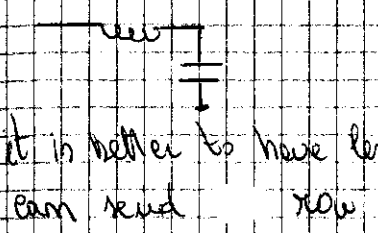 it is better to have le
can send row